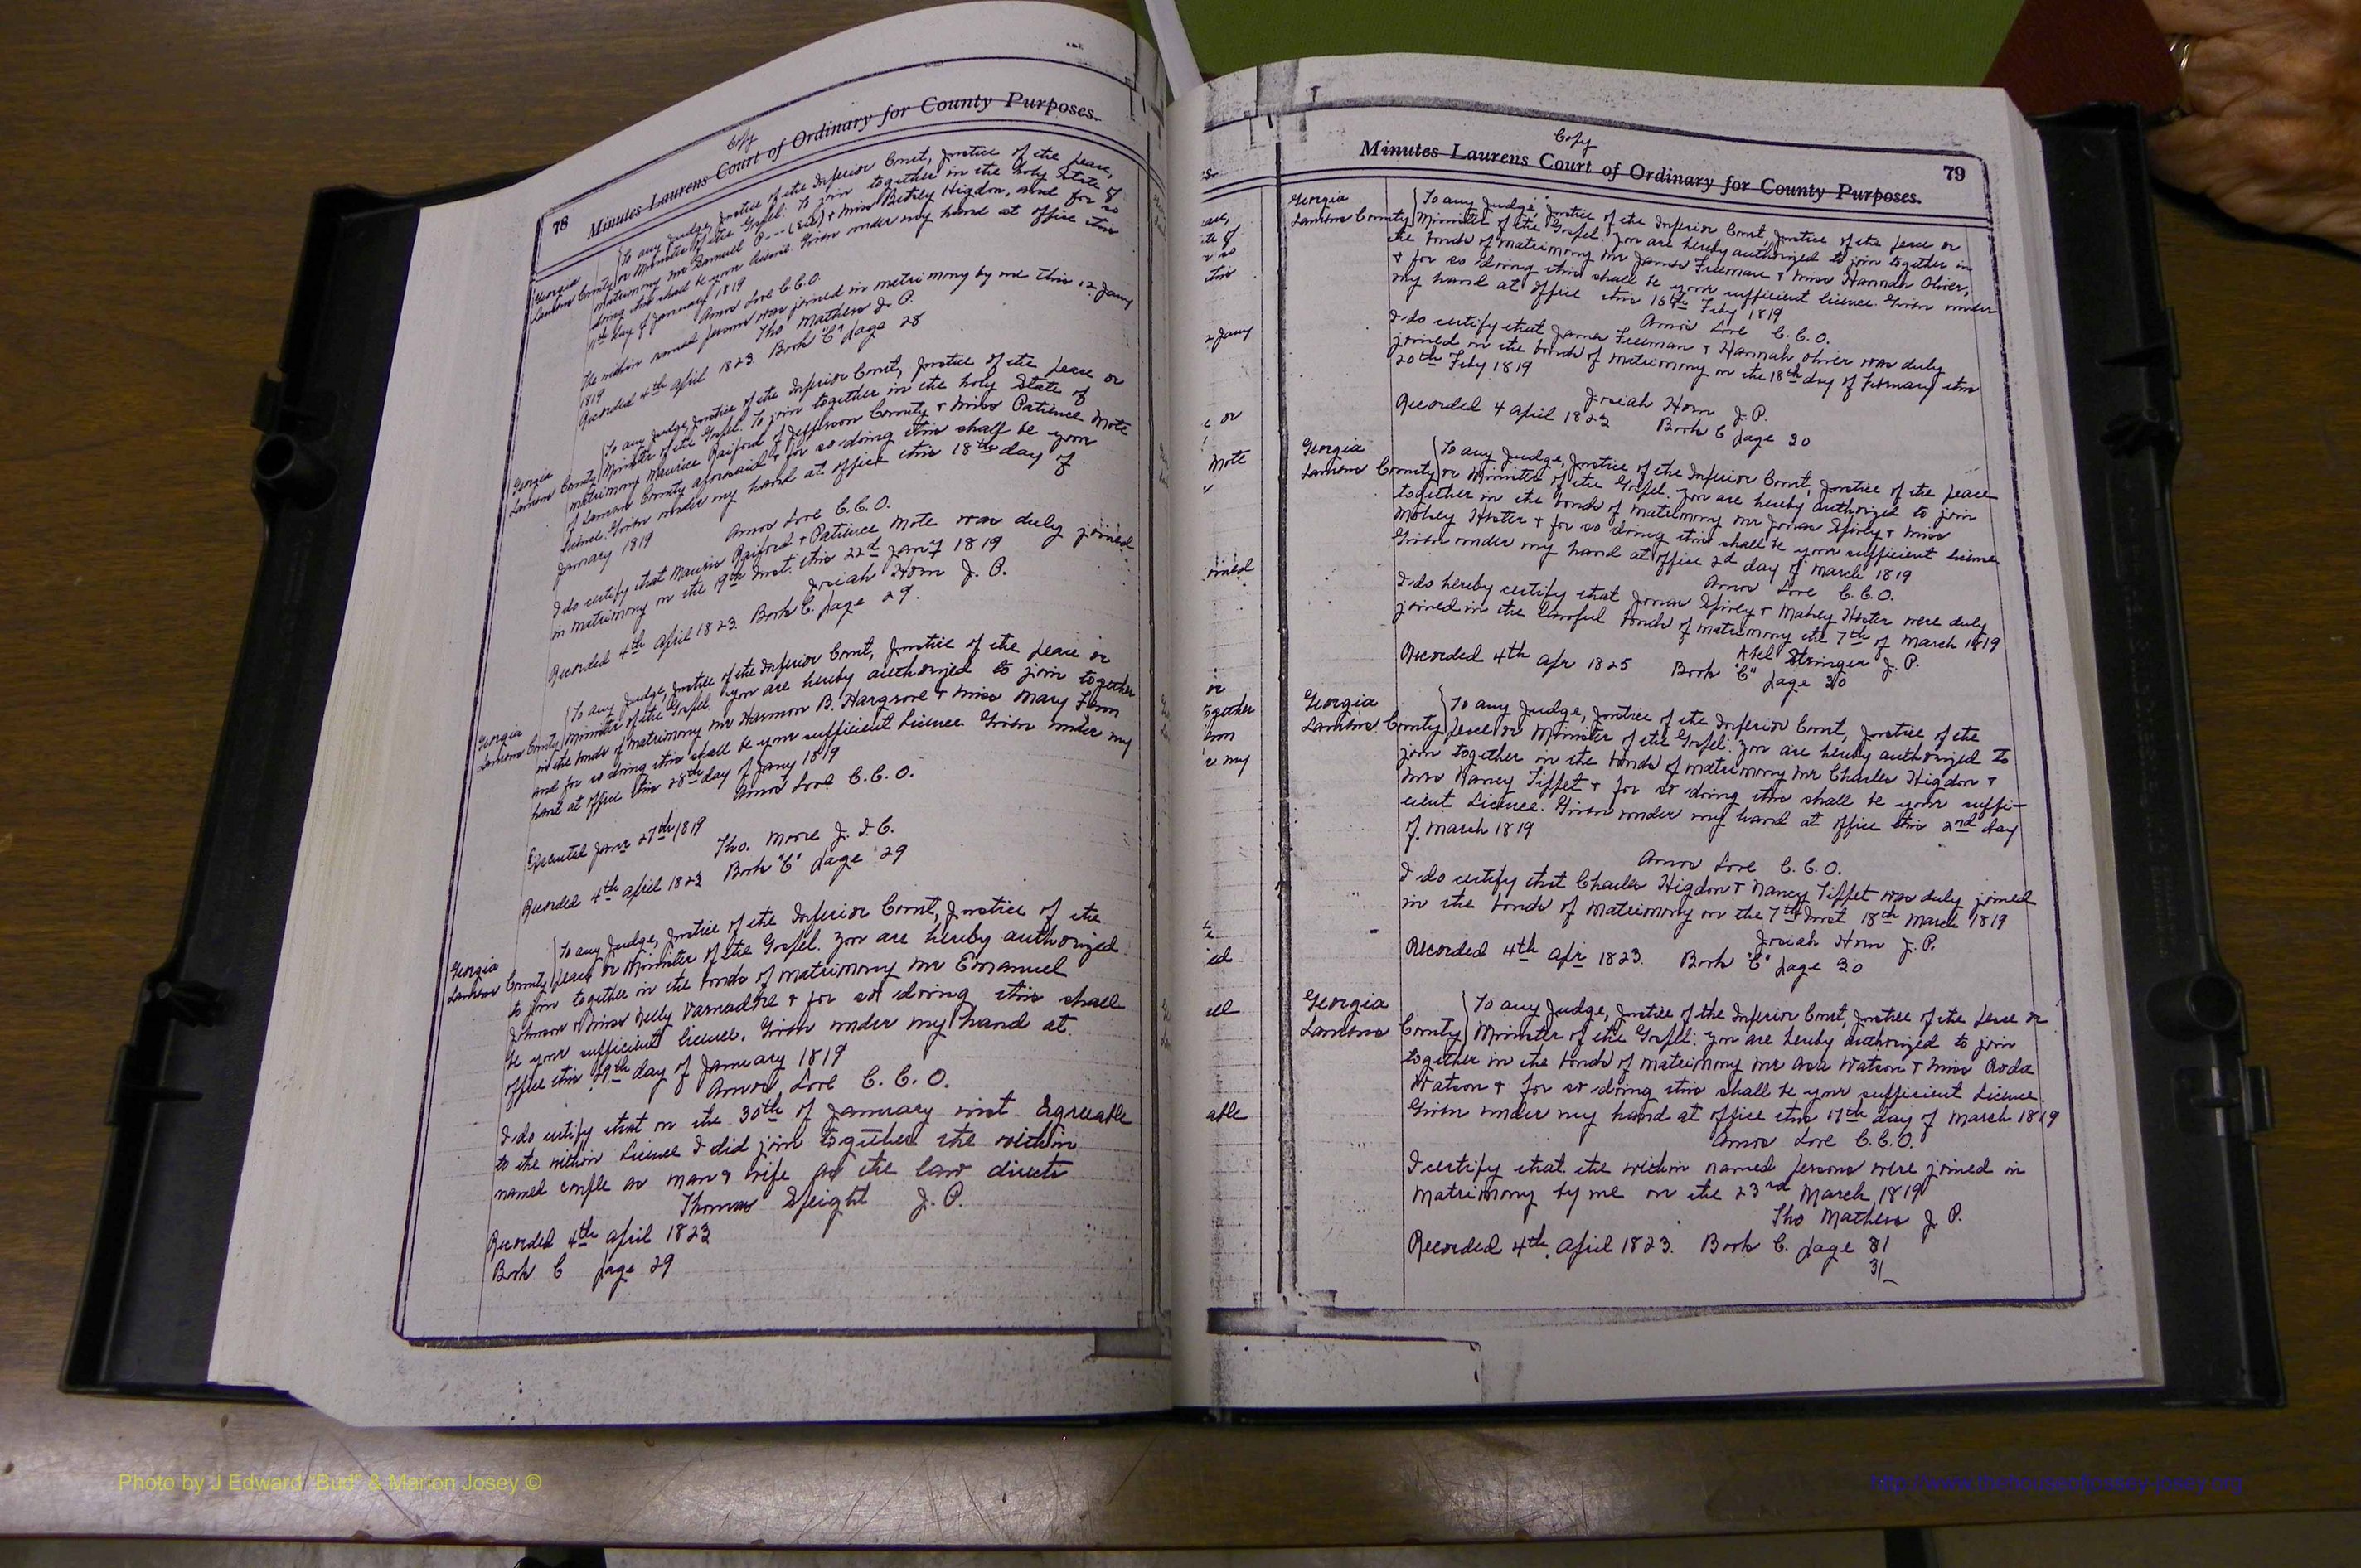 Copy
78 Minutes Laurens Court of Ordinary for County Purposes.
Georgia
Laurens County
To any Judge, Justice of the Inferior Court, Justice of the peace,
or Minister of the Gospel. To join together in the Holy State of
matrimony Mr Samuel P--- (sic) & Miss Betsey Higdon, and for so
doing this shall be your licence. Given under my hand at office this
11th day of January 1819
Amos Love C.C.O.
The within named persons was joined in matrimony by me this 12 Jany
1819
Tho Mathews J. P.
Recorded 4th April 1823 Book "C" page 28
Georgia
Laurens County
To any Judge, Justice of the Inferior Court, Justice of the peace or
Minister of the Gospel. To join together in the holy State of
matrimony Maurice Raiford of Jefferson County & Miss Patience Mote
of Laurens County aforesaid & for so doing this shall be your
licence. Given under my hand at office this 18th day of
January 1819
Amos Love C.C.O.
I do certify that Maurice Raiford & Patience Mote was duly joined
in matrimony on the 19th Inst. this 22d Jany 1819
Josiah Horn J. P.
Recorded 4th April 1823. Book C. page 29.
Georgia
Laurens County
To any Judge, Justice of the Inferior Court, Justice of the peace or
Minister of the Gospel. You are hereby authorized to join together
in the bonds of matrimony Mr Harmon B. Hargrove & Miss Mary Fann
and for so doing this shall be your sufficient Licence Given under my
hand at office this 28th day of Jany 1819
Amos Love C.C.O.
Executed Jany 27th 1819
Tho. Moore J. I. C.
Recorded 4th April 1823 Book "C" page 29
Georgia
Laurens County
To any Judge, Justice of the Inferior Court, Justice of the
peace or Minister of the Gospel. You are hereby authorized
to join together in the bonds of matrimony Mr Emanuel
Johnson & Miss Nelly Varnadore & for so doing this shall
be your sufficient licence. Given under my hand at
office this 29th day of January 1819
Amos Love C. C. O.
I do certify that on the 30th of January inst Agreeable
to the within Licence I did join together the within
named couple as man & wife as the law directs
Thomas Speight J. P.
Recorded 4th April 1823
Book C page 29
Copy
Minutes Laurens Court of Ordinary for County Purposes. 79
Georgia
Laurens County
To any Judge, Justice of the Inferior Court, Justice of the peace or
Minister of the Gospel. You are hereby authorized to join together in
the bonds of matrimony Mr James Freeman & Miss Hannah Oliver,
& for so doing this shall be your sufficient licence. Given under
my hand at office this 16th Feby 1819
Amos Love C. C. O.
I do certify that James Freeman & Hannah Oliver was duly
joined in the bonds of matrimony on the 18th day of February this
20th Feby 1819
Josiah Horn J. P.
Recorded 4 April 1823 Book C page 30
Georgia
Laurens County
To any Judge, Justice of the Inferior Court, Justice of the peace
or Minister of the Gospel. You are hereby authorized to join
together in the bonds of matrimony Mr Jonas Spivey & Miss
Mabley Hester & for so doing this shall be your sufficient licence
Given under my hand at office 2d day of March 1819
Amos Love C.C.O.
I do hereby certify that Jonas Spivey & Mabley Hester were duly
joined in the lawful bonds of matrimony the 7th of March 1819
Abel Stringer J. P.
Recorded 4th Apr 1825 Book "C" page 30
Georgia
Laurens County
To any Judge, Justice of the Inferior Court, Justice of the
peace or Minister of the Gospel. You are hereby authorized to
join together in the bonds of matrimony Mr Charles Higdon &
Mrs Nancy Tippet & for so doing this shall be your suffi-
cient Licence. Given under my hand at office this 2nd day
of March 1819
Amos Love C.C.O.
I do certify that Charles Higdon & Nancy Tippet was duly joined
in the bonds of Matrimony on the 7th Inst 18th March 1819
Josiah Horn J. P.
Recorded 4th Apr 1823. Book "C" page 30
Georgia
Laurens County
To any Judge, Justice of the Inferior Court, Justice of the peace or
Minister of the Gospel. You are hereby authorized to join
together in the bonds of matrimony Mr Asa Watson & Miss Roda
Watson & for so doing this shall be your sufficient Licence.
Given under my hand at office this 17th day of March 1819
Amos Love C.C.O.
I certify that the within named persons were joined in
Matrimony by me on the 23rd March 1819
Tho Mathews J. P.
Recorded 4th April 1823. Book C. page 31
31
Photo by J Edward "Bud" & Marion Josey ©
http://www.thehouseofjossey-josey.org